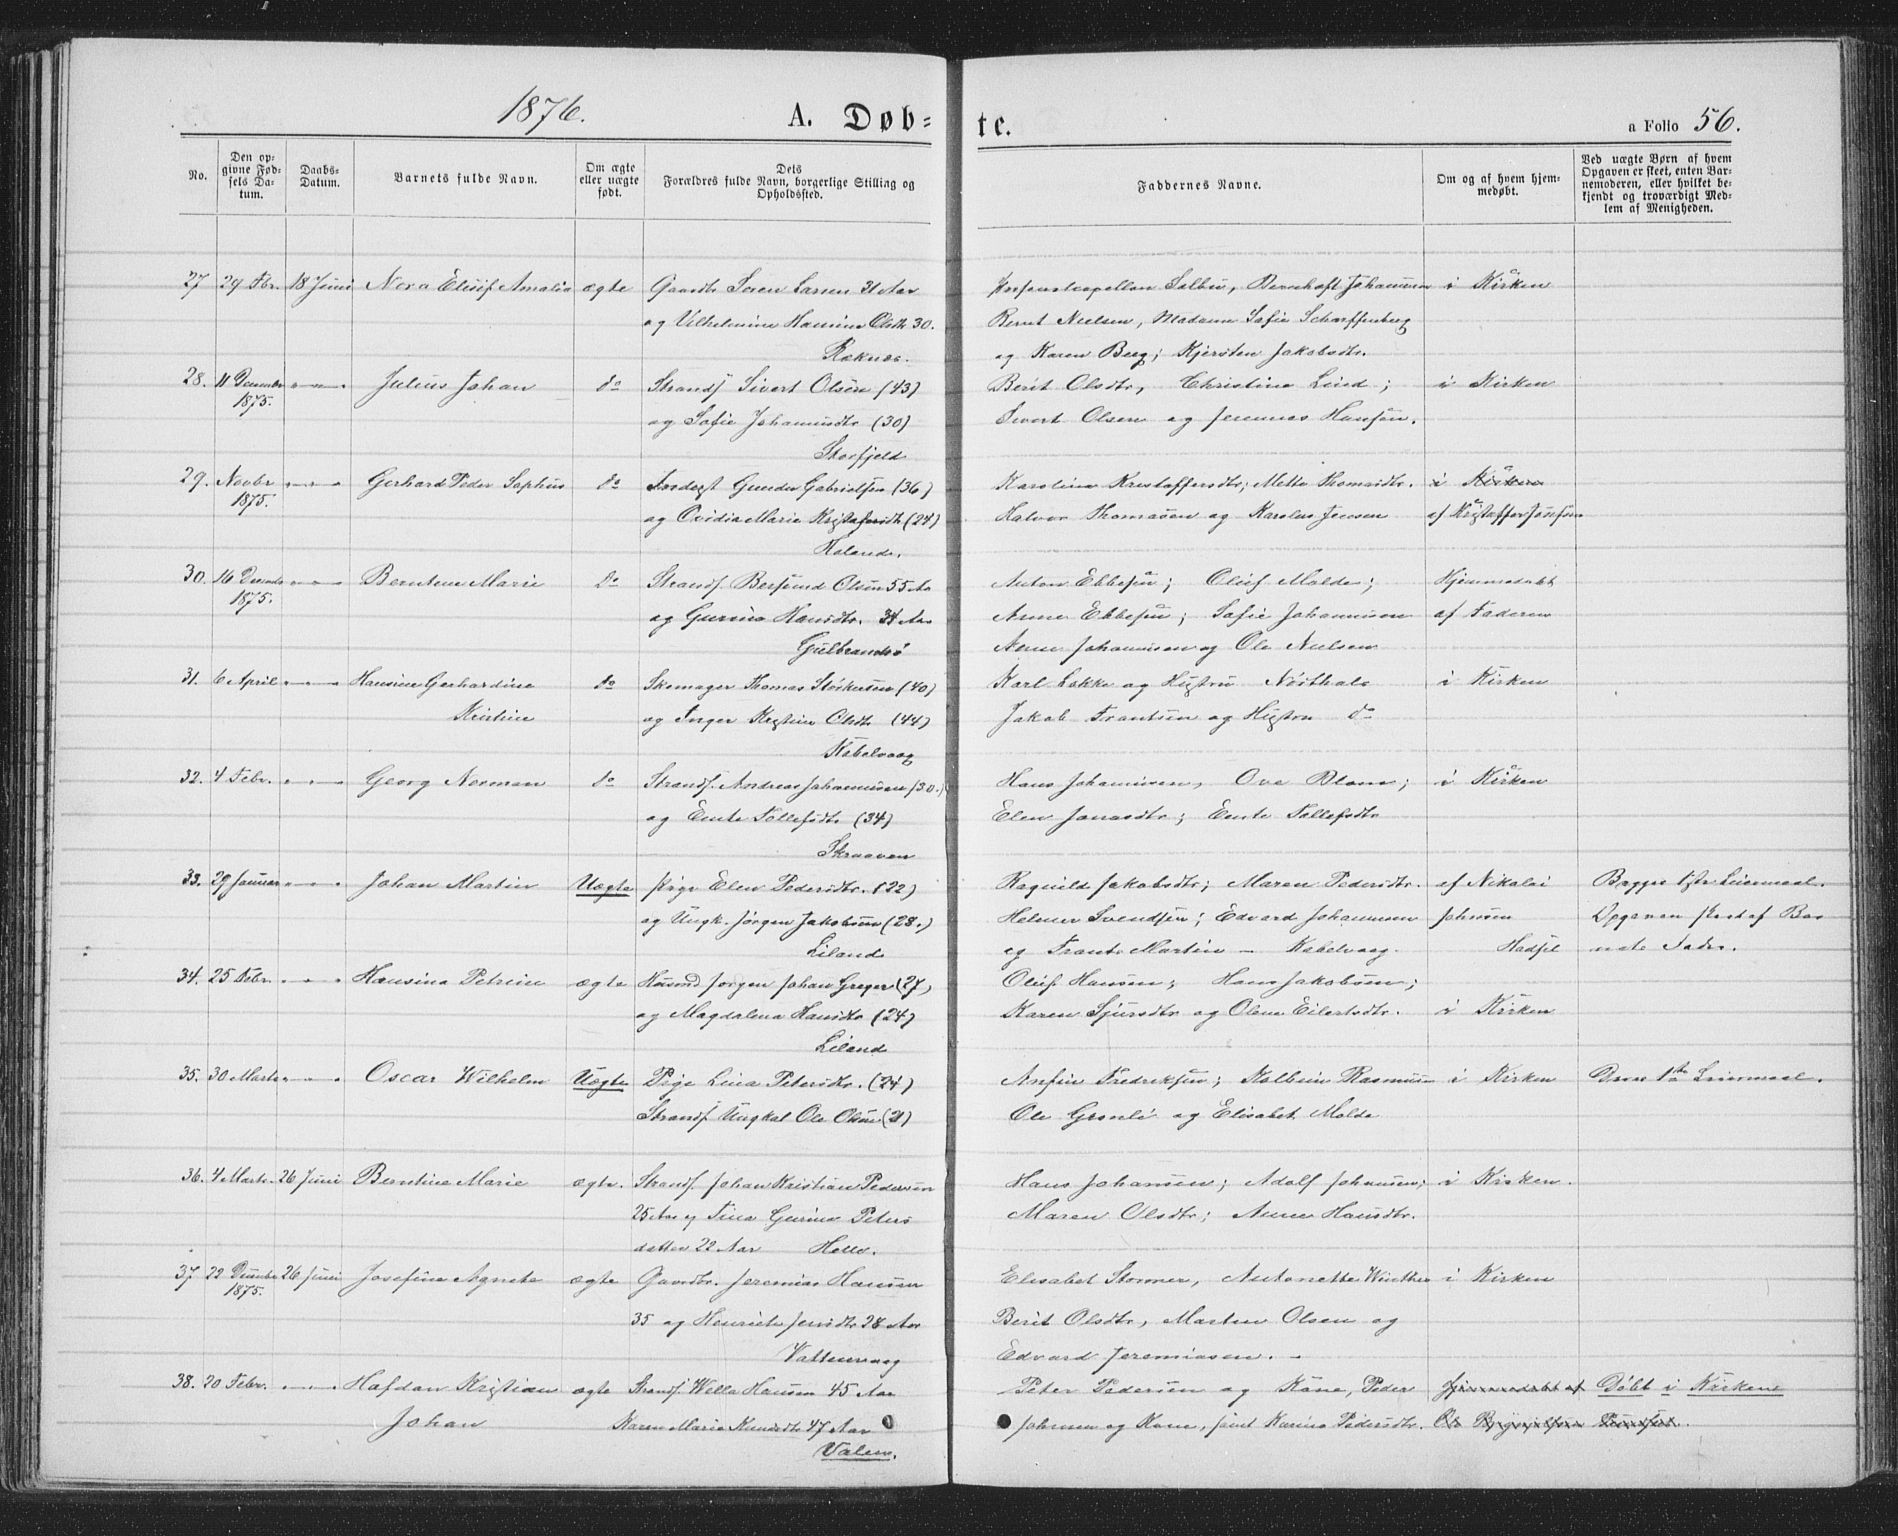 1876.
A. Døb=
te.
a Folio 56.
No.
Den op-
givne Fød-
sels Da-
tum.
Daabs-
Datum.
Barnets fulde Navn.
Om ægte
eller uægte
født.
Dets
Forældres fulde Navn, borgerlige Stilling og
Opholdssted.
Faddernes Navne.
Om og af hvem hjem-
medøbt.
Ved uægte Børn af hvem
Opgaven er skeet, enten Bar-
nemoderen, eller hvilket be-
kjendt og troværdigt Med-
lem af Menigheden.
27 29 Fbr. 18 Juni Nora Elisif Amalia ægte Gaardbr Soren Larsen 31 Aar
og Vilhelmine Hansine Olsdtr 30.
Reknes.
Salbu, Johannesen i Kirken
Bernt Nielsen, Madame Sofie Scharffenberg
og Karen Berg; Kjersten Jakobsdtr.
28. 11 December 1875. " " " Julius Johan do Strandf Sivert Olsen (43)
og Sofie Johannesdtr (30)
Storfjeld
Berit Olsdtr, Christine Lind; i Kirken
Sivert Olsen og Jeremias Hansen.
29. Novbr 1875. " " " Gerhard Peder Sophus do Inderst Gunder Gabrielsen (36)
og Ovidia Marie Kristofersdtr (24)
Kalande.
Karoline Kristaffersdtr; Mette Thomasdtr. i Kirken
Halvor Thomasen og Karolus Jensen af Kristaffer Jonsen
30. 16 Decembr 1875. " " " Berntine Marie do Strandf. Bersvend Olsen 55 Aar
og Gurina Hansdtr. 34 Aar
Gulbrandsø
Anton Ebbesen; Oluf Molde; Hjemmedøbt
Anne Ebbesen; Sofie Johannesen af Faderen
Anne Johannesen og Ole Nielsen
31. 6 April " " " Hansine Gerhardine
Kristine
do Skomager Thomas Størkersen (40)
og Inger Kristine Olsdtr (44)
Kabelvaag
Karl Løkke og Hustru i Kirken
Jakob Frantsen og Hustru do
32. 4 Febr. " " " Georg Norman do Strandf. Andreas Johannesen (30.)
og Ente Tollefsdtr (34)
Skraaven
Hans Johannesen, Ove Blom; i Kirken
Elen Jonasdtr; Ente Tollefsdtr
33. 29 Januar " " " Johan Martin Uægte Pige Elen Pedersdtr. (22)
og Ungk. Jørgen Jakobsen (28.)
Liland
Ragnild Jakobsdtr; Maren Pedersdtr. af Nikolai Begges 1ste Leiermaal.
Helmer Svendsen; Edvard Johannesen Johnsen Opgaven skeet af Bar
og Frants Martin – Kabelvaag. Hadsel nets Fader.
34. 25 Febr. " " " Hansina Petrine ægte Husmd Jørgen Johan Greger (27)
og Magdalena Hansdtr (24)
Liland
Oluf Hansen; Hans Jakobsen;
Karen Sjursdtr og Oline Eilertsdtr. i Kirken
35. 30 Marts " " " Oscar Wilhelm Uægte Pige Lina Petersdtr. (24)
Strandf. Ungkal Ole Olsen (21)
Anfin Fredriksen; Kolbein Rasmusen i Kirken Deres 1ste Leiermaal.
Ole Grønli og Elisabet Molde
36. 4 Marts 26 Juni Berntine Marie ægte. Strandf. Johan Kristian Pedersen
25 Aar og Tina Gurina Peters
datter 22 Aar Helle.
Hans Johansen; Adolf Johnsen; i Kirken.
Maren Olsdtr; Anne Hansdtr.
37. 22 Decembr 1875. 26 Juni Josefine Agnete ægte Gaardbr. Jeremias Hansen
35 og Henriete Jensdtr 28 Aar
Vatterevaag
Elisabet Stormer, Antonette Winther i Kirken
Berit Olsdtr, Martin Olsen og
Edvard Jeremiasen. –
38. 20 Febr. " " " Hafdan Kristian
Johan
ægte Strandf. Wella Hansen 45 Aar
Karen Marie Knudsdtr 47 Aar
Valen.
Peter Pedersen og Kone, Peder Hjemmedøbt af Døbt i Kirken
Johnsen og Kone, samt Karine Pedersdtr. Ole